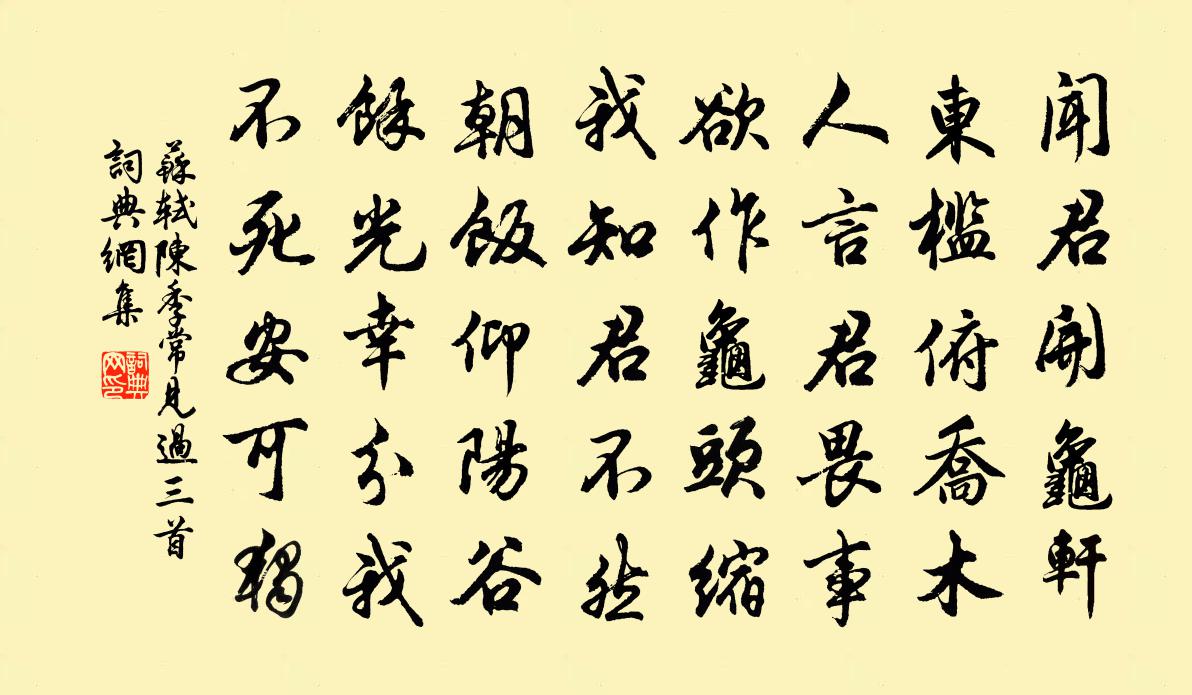 聞君開龜軒
東檻俯喬木
人言君畏事
欲作龜頭縮
我知君不然
朝飯仰陽谷
餘光幸分我
不死安可獨
蘇軾陳季常見過三首
詞典網集
詞典网印